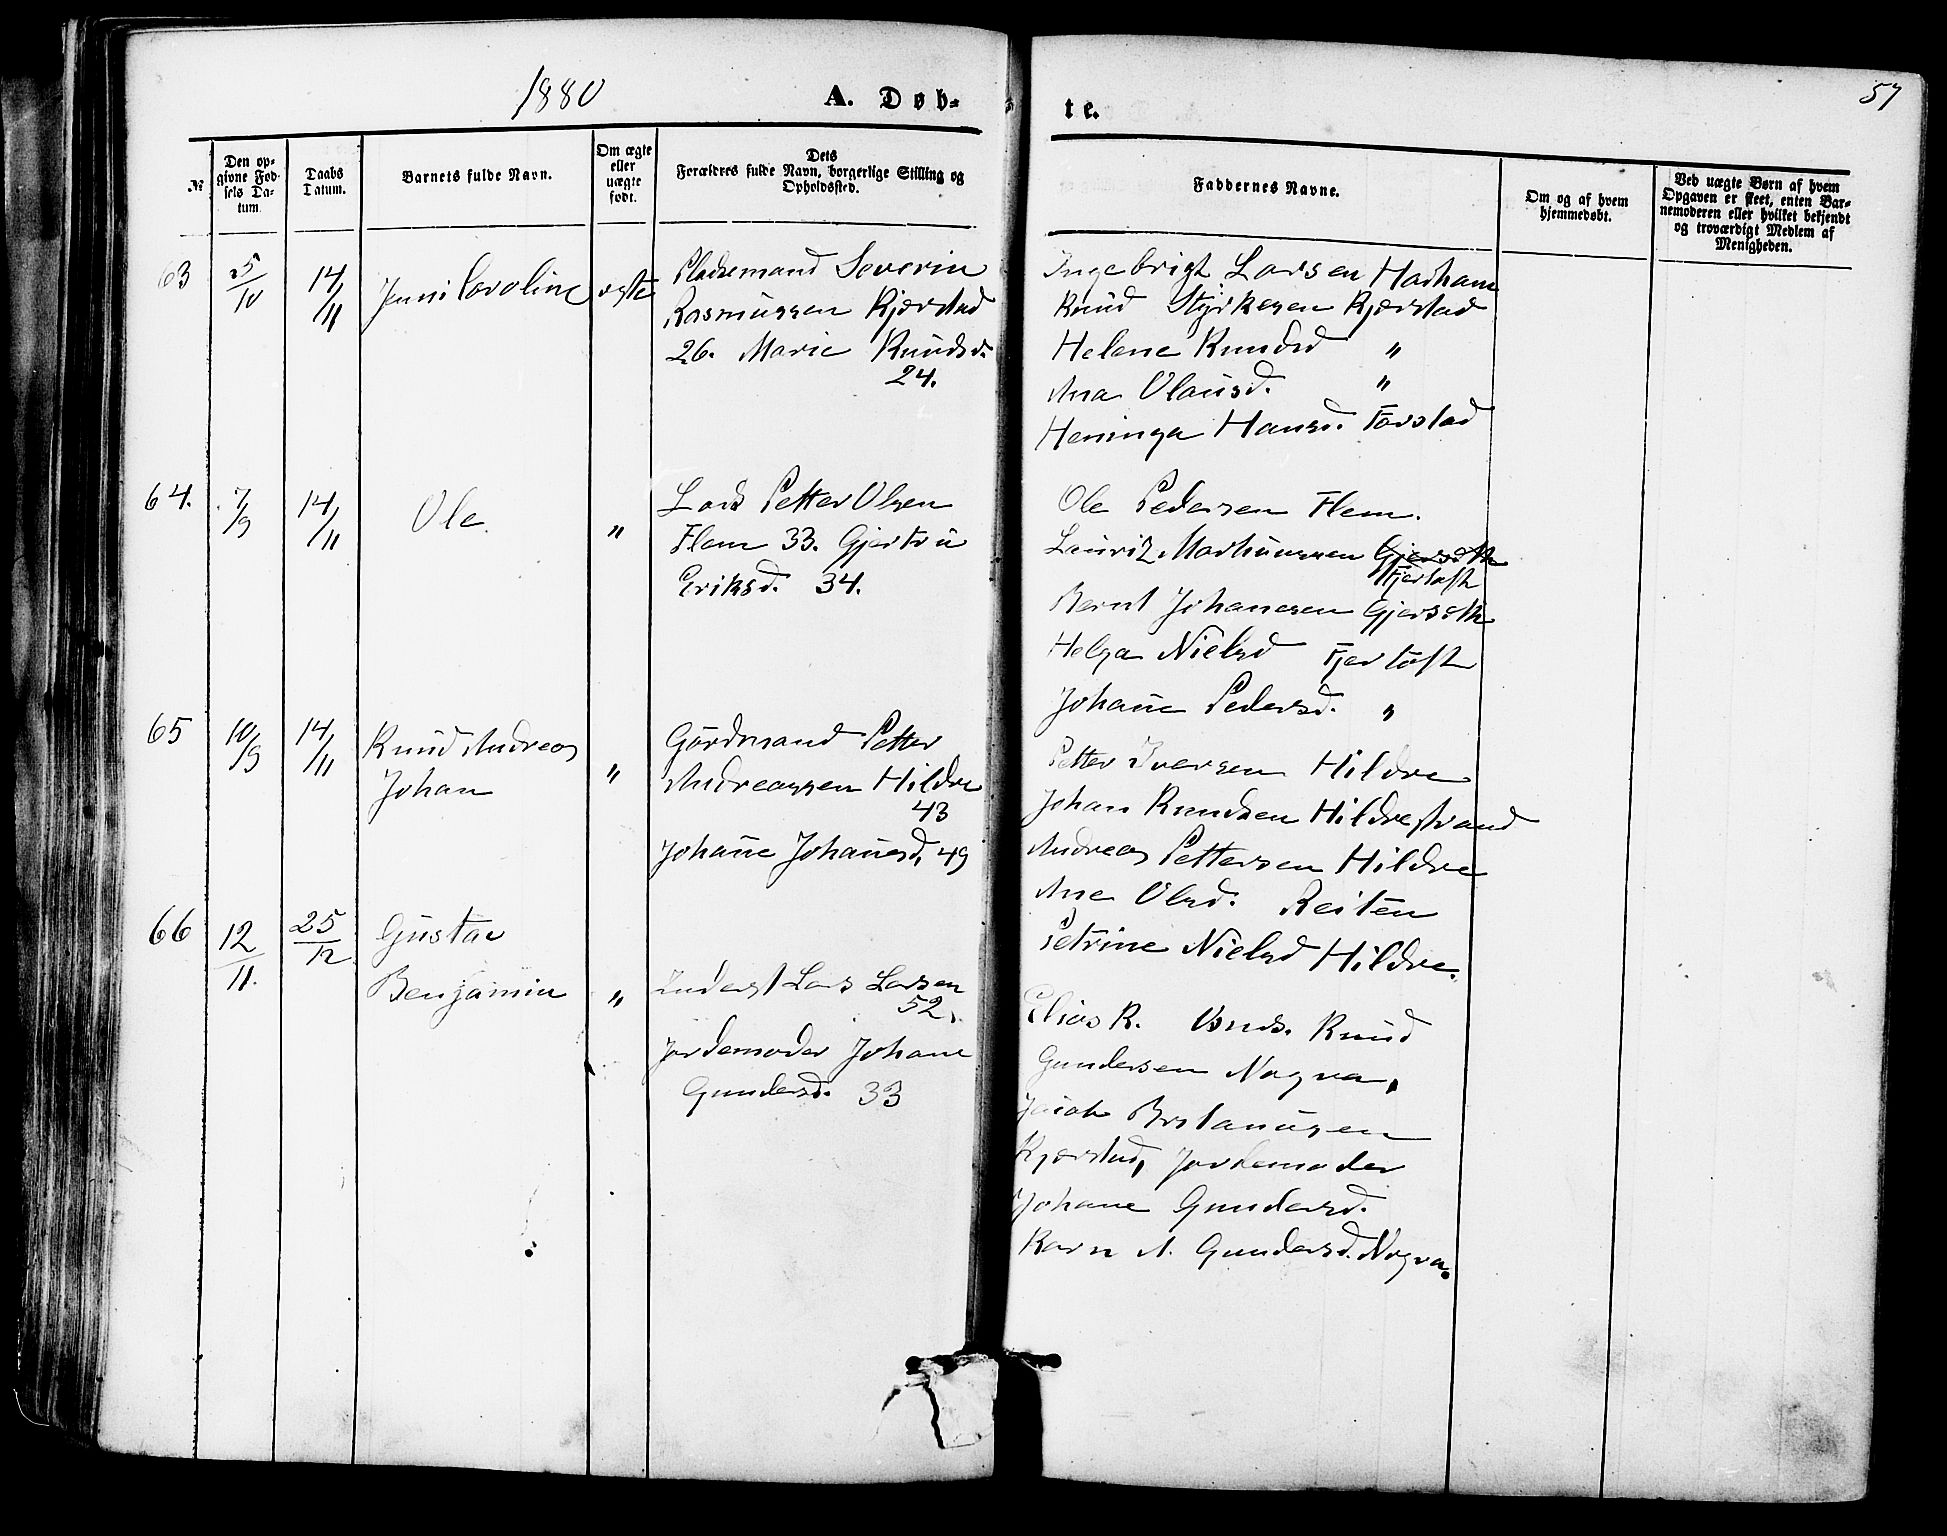 1880
A. Døb-
te.
57
№
Den op-
givne Fød-
sels Da-
tum.
Daabs
Datum.
Barnets fulde Navn.
Om ægte
eller
uægte
født.
Dets
Forældres fulde Navn, borgerlige Stilling og
Opholdssted.
Faddernes Navne.
Om og af hvem
hjemmedøbt.
Ved uægte Børn af hvem
Opgaven er skeet, enten Bar-
nemoderen eller hvilket bekjendt
og troværdigt Medlem af
Menigheden.
63
5/10
14/11
Jenni Caroline
ægte
Pladsemand Severin
Rasmussen Kjerstad
26. Marie Knudsd.
24.
Ingebrigt Larsen Harham
Knud Styrkesen Kjerstad
Helene Knudsd "
Ana Olausd. "
Heninga Hansd. Farstad
64.
7/9
14/11
Ole.
"
Lars Petter Olsen
Flem 33. Gjertrü
Eriksd. 34.
Ole Pedersen Flem.
Lauriz Markussen Gjerseth
Fjertoft
Bernt Johanesen Gjerseth
Helga Nielsd Fjertoft
Johane Pedersd. "
65
10/9
14/11
Knud Andreas
Johan
"
Gårdmand Petter
Andreassen Hildre
43
Johane Johanesd, 49
Petter Iversen Hildre
Johan Knudsen Hildrestrand
Andreas Pettersen Hildre
Ane Olsd. Reiten
Petrine Nielsd Hildre.
66
12/11.
25/12
Gustav
Benjamin
"
Inderst Lars Larsen
52,
Jordemoder Johane
Gundersd. 33
Elias R. Knud
Gundersen Nogva,
Jacob
Kjerstad, Jordemoder
Johane Gundersd.
Karn A. Gundersd. Nogva.